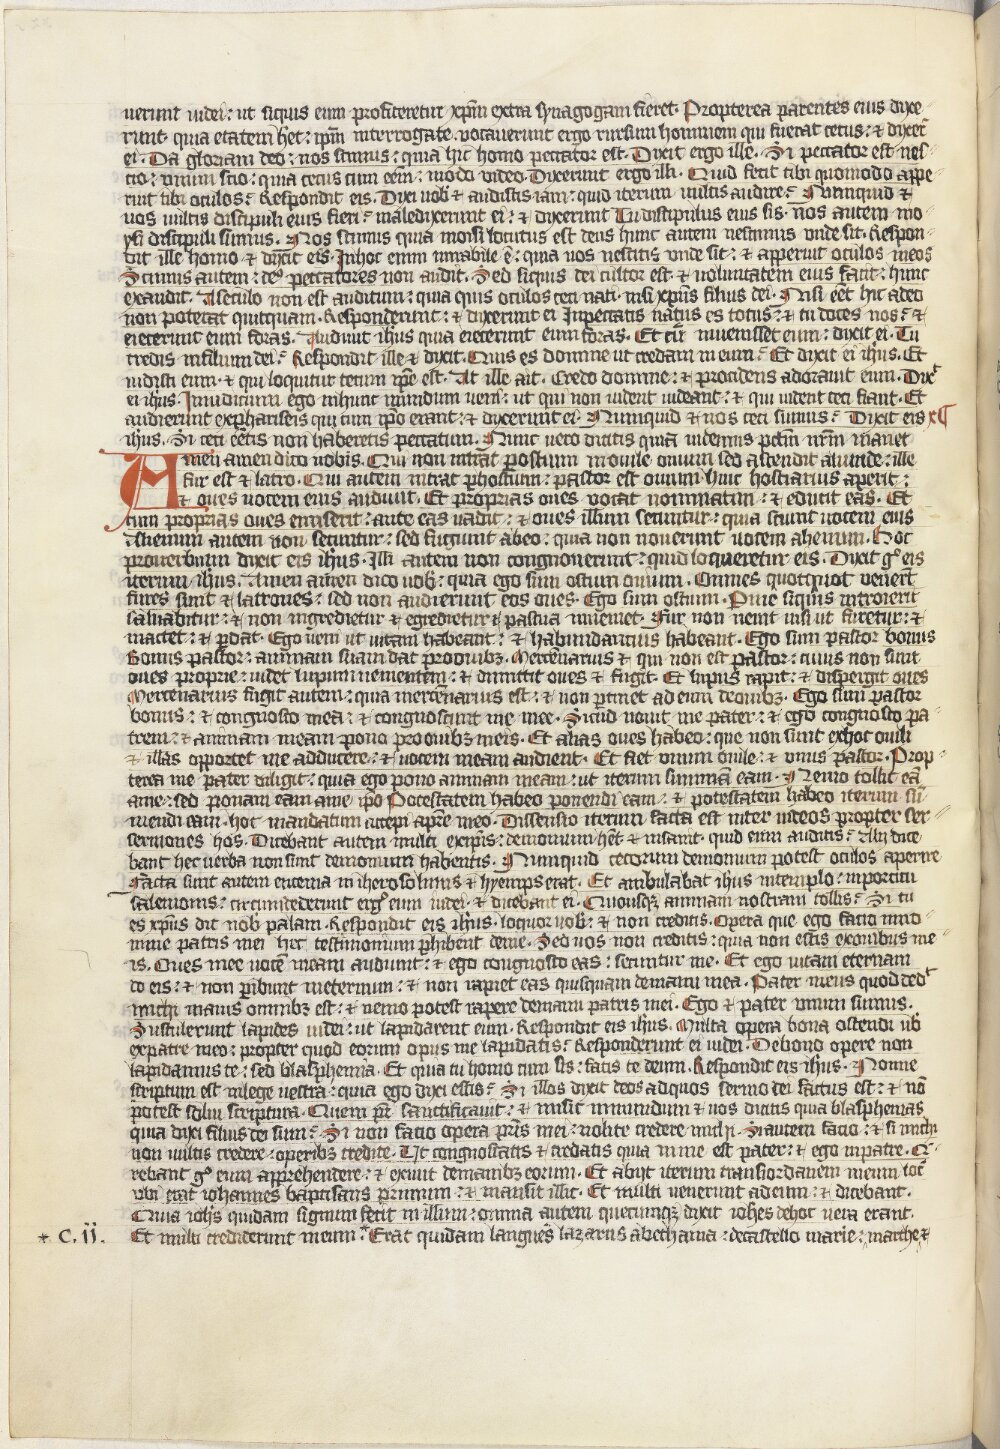 uerunt iudei: ut siquis eum profiteretur xpm extra synagogam fieret. Propterea parentes eius dixe-
runt. quia etatem het: ipm interrogate. vocauerunt ergo rursum hominem qui fuerat cecus: & dixert
ei. Da gloriam deo: nos scimus: quia hic homo peccator est. Dixit ergo ille. Si peccator est nes-
cio: unum scio: quia cecus cum eem: modo video. Dixerunt ergo illi. Quid fecit tibi quomodo appe-
ruit tibi oculos? Respondit eis. Dixi uob & audistis iam: quid iterum uultis audire? Nunquid &
uos uultis discipuli eius fieri? maledixerunt ei: & dixerunt Tu discipulus eius sis. nos autem mo-
ysi discipuli sumus. Nos scimus quia moisi locutus est deus hunc autem nescimus unde sit. Respon-
dit ille homo & dixit eis. Inhoc enim mirabile e: quia uos nescitis unde sit: & apperuit oculos meos
Scimus autem: deus peccatores non audit. Sed siquis dei cultor est. & uoluntatem eius facit: hunc
exaudit. Aseculo non est auditum: quia quis oculos ceci nati. nisi xpus filius dei. Nisi eet hic adeo
non poterat quicquam. Responderunt: & dixerunt ei Inpeccatis natus es totus: & tu doces nos? &
eiecerunt eum foras. Audiuit ihus quia eiecerunt eum foras. Et cum inuenisset eum: dixit ei. Tu
credis infilium dei? Respondit ille & dixit. Quis es domine ut credam in eum? Et dixit ei ihus. Et
uidisti eum. & qui loquitur tecum ipse est. At ille ait. Credo domine: & procidens adorauit eum. Dixt
ei ihus. Iniudicium ego inhunc mundum veni: ut qui non uident uideant: & qui uident ceci fiant. Et
audierunt exphariseis qui cum ipo erant: & dixerunt ei. Nunquid & nos ceci sumus? Dixit eis
ihus. Si ceci eetis non haberetis peccatum. Nunc uero dicitis quia uidemus pctm nrm manet
Amen amen dico uobis. Qui non intrat postium in ouile ouium sed ascendit aliunde: ille
fur est & latro. Qui autem intrat phostium: pastor est ouium huic hostiarius aperit:
& oues uocem eius audiunt. Et proprias oues vocat nominatim: & educit eas. Et
cum proprias oues emiserit: ante eas uadit: & oues illum secuntur: quia sciunt uocem eius
Alienum autem non secuntur: sed fugiunt abeo: quia non nouerunt uocem alienum. Hoc
prouerbium dixit eis ihus. Illi autem non congnouerunt: quid loqueretur eis. Dixit go eis
iterum ihus. Amen amen dico uob: quia ego sum ostium ouium. Omnes quotquot venert
fures sunt & latrones: sed non audierunt eos oues. Ego sum ostium. Pme siquis introierit
saluabitur: & non ingredietur & egredietur & pascua inueniet. Fur non uenit nisi ut furetur: &
mactet: & pdat. Ego ueni ut uitam habeant: & habundancius habeant. Ego sum pastor bonus
Bonus pastor: animam suam dat proouibz. Mercenarius & qui non est pastor: cuius non sunt
oues proprie: uidet lupum uenientem: & dimittit oues & fugit. Et lupus rapit: & dispergit oues
Mercenarius fugit autem: quia mercenarius est: & non ptinet ad eum deouibz. Ego sum pastor
bonus: & congnosco mea: & congnoscunt me mee. Sicud nouit me pater: & ego congnosco pa-
trem: & animam meam pono proouibz meis. Et alias oues habeo: que non sunt exhoc ouili
& illas opportet me adducere: & uocem meam audient. Et fiet unum ouile: & unus pastor. Prop-
terea me pater diligit: quia ego pono animam meam: ut iterum summam eam. Nemo tollit ea
ame: sed ponam eam ame ipo Potestatem habeo ponendi eam: & potestatem habeo iterum su-
mendi eam. hoc mandatum accepi apre meo. Dissensio iterum facta est inter iudeos propter ser-
sermones hos. Dicebant autem multi exipis: demonium het & insanit. quid eum auditis? Alii dice-
bant hec uerba non sunt demonium habentis. Nunquid cecorum demonium potest oculos aperire
Facta sunt autem encenia in iherosolimis & hyemps erat. Et ambulabat ihus intemplo: inporticu
salemonis: circumdederunt ergo eum iudei. & dicebant ei. Quousqz animam nostram tollis? Si tu
es xpus dic nob palam. Respondit eis ihus. loquor uob: & non creditis. Opera que ego facio inno-
mine patris mei hec testimonium phibent deme. Sed uos non creditis: quia non estis exouibus me-
is. Oues mee uocem meam audiunt: & ego congnosco eas: secuntur me. Et ego uitam eternam
do eis: & non pibunt ineternum: & non rapiet eas quisquam demanu mea. Pater meus quod dedt
michi maius omnibz est: & nemo potest rapere demanu patris mei. Ego & pater unum sumus.
Sustulerunt lapides iudei: ut lapidarent eum. Respondit eis ihus. Multa opera bona ostendi ub
expatre meo: propter quod eorum opus me lapidatis? Responderunt ei iudei. Debono opere non
lapidamus te: sed blasphemia. Et quia tu homo cum sis: facis te deum. Respondit eis ihus. Nonne
scriptum est inlege uestra: quia ego dixi estis? Si illos dixit deos adquos sermo dei factus est: & no
potest solui scriptura. Quem pr sanctificauit: & misit inmundum & uos dicitis quia blasphemas
quia dixi filius dei sum? Si non facio opera pris mei: nolite credere michi. Si autem facio: & si michi
non uultis credere: operibz credite. Ut congnoscatis & credatis quia in me est pater: & ego inpatre. Q-
rebant go eum apprehendere: & exiuit demanibz eorum. Et abiit iterum transiordanem ineum loc
ubi erat iohannes baptisans primum: & mansit illic. Et multi uenerunt adeum: & dicebant.
Quia iohs quidam signum fecit in illum: omnia autem quecunqz dixit iohes dehoc uera erant.
* C. ii. Et multi crediderunt ineum: * Erat quidam languens lazarus abethania: decastello marie: marthe &